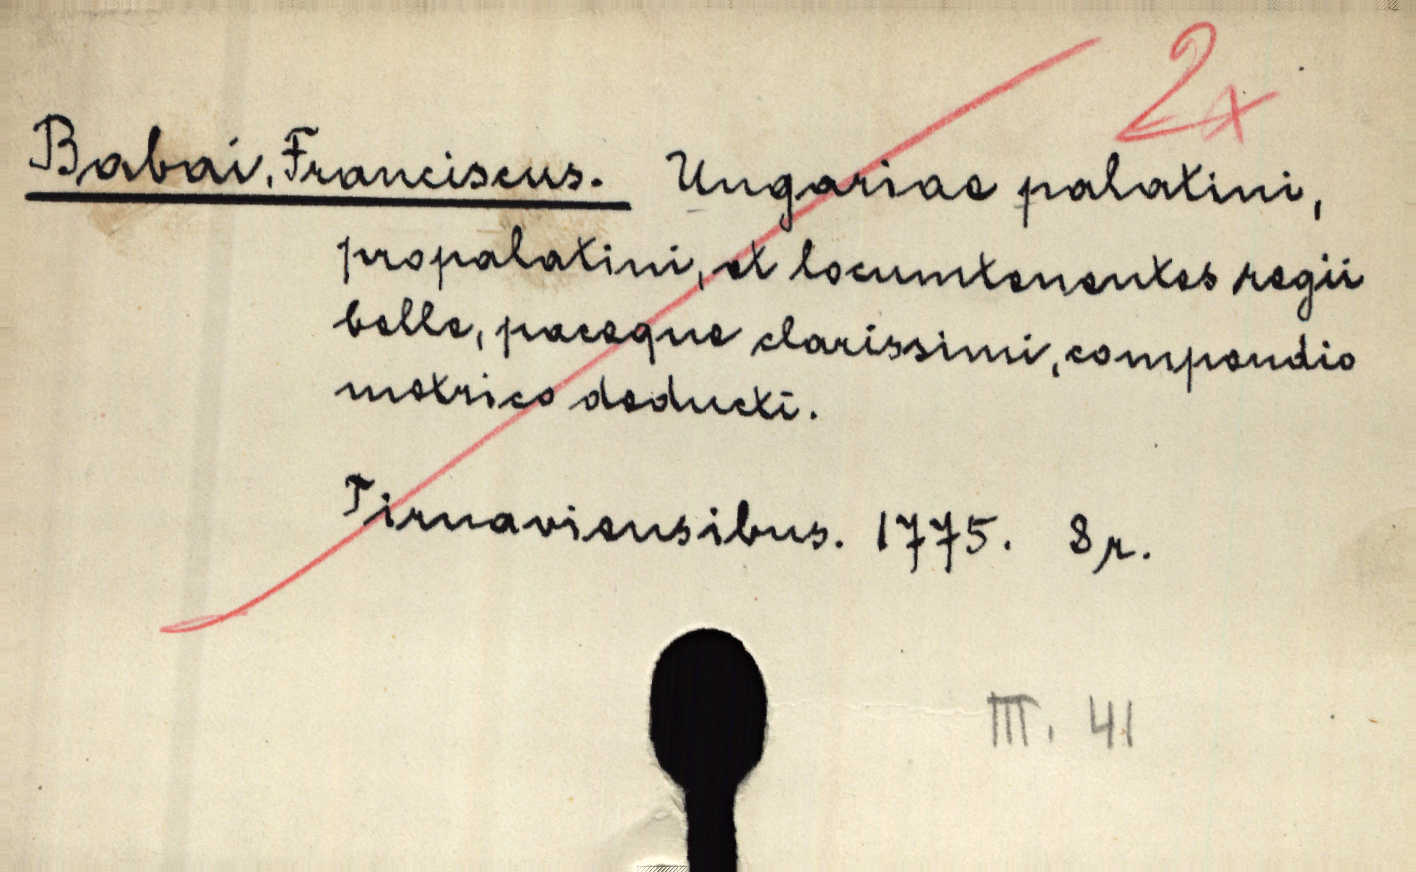 2x
Babai, Franciscus. Ungariae palatini,
propalatini, et locumtenentes regii
belle, paceque clarissimi, compendio
metrico deducti.
Tirnaviensibus. 1775. 8r.
III. 41